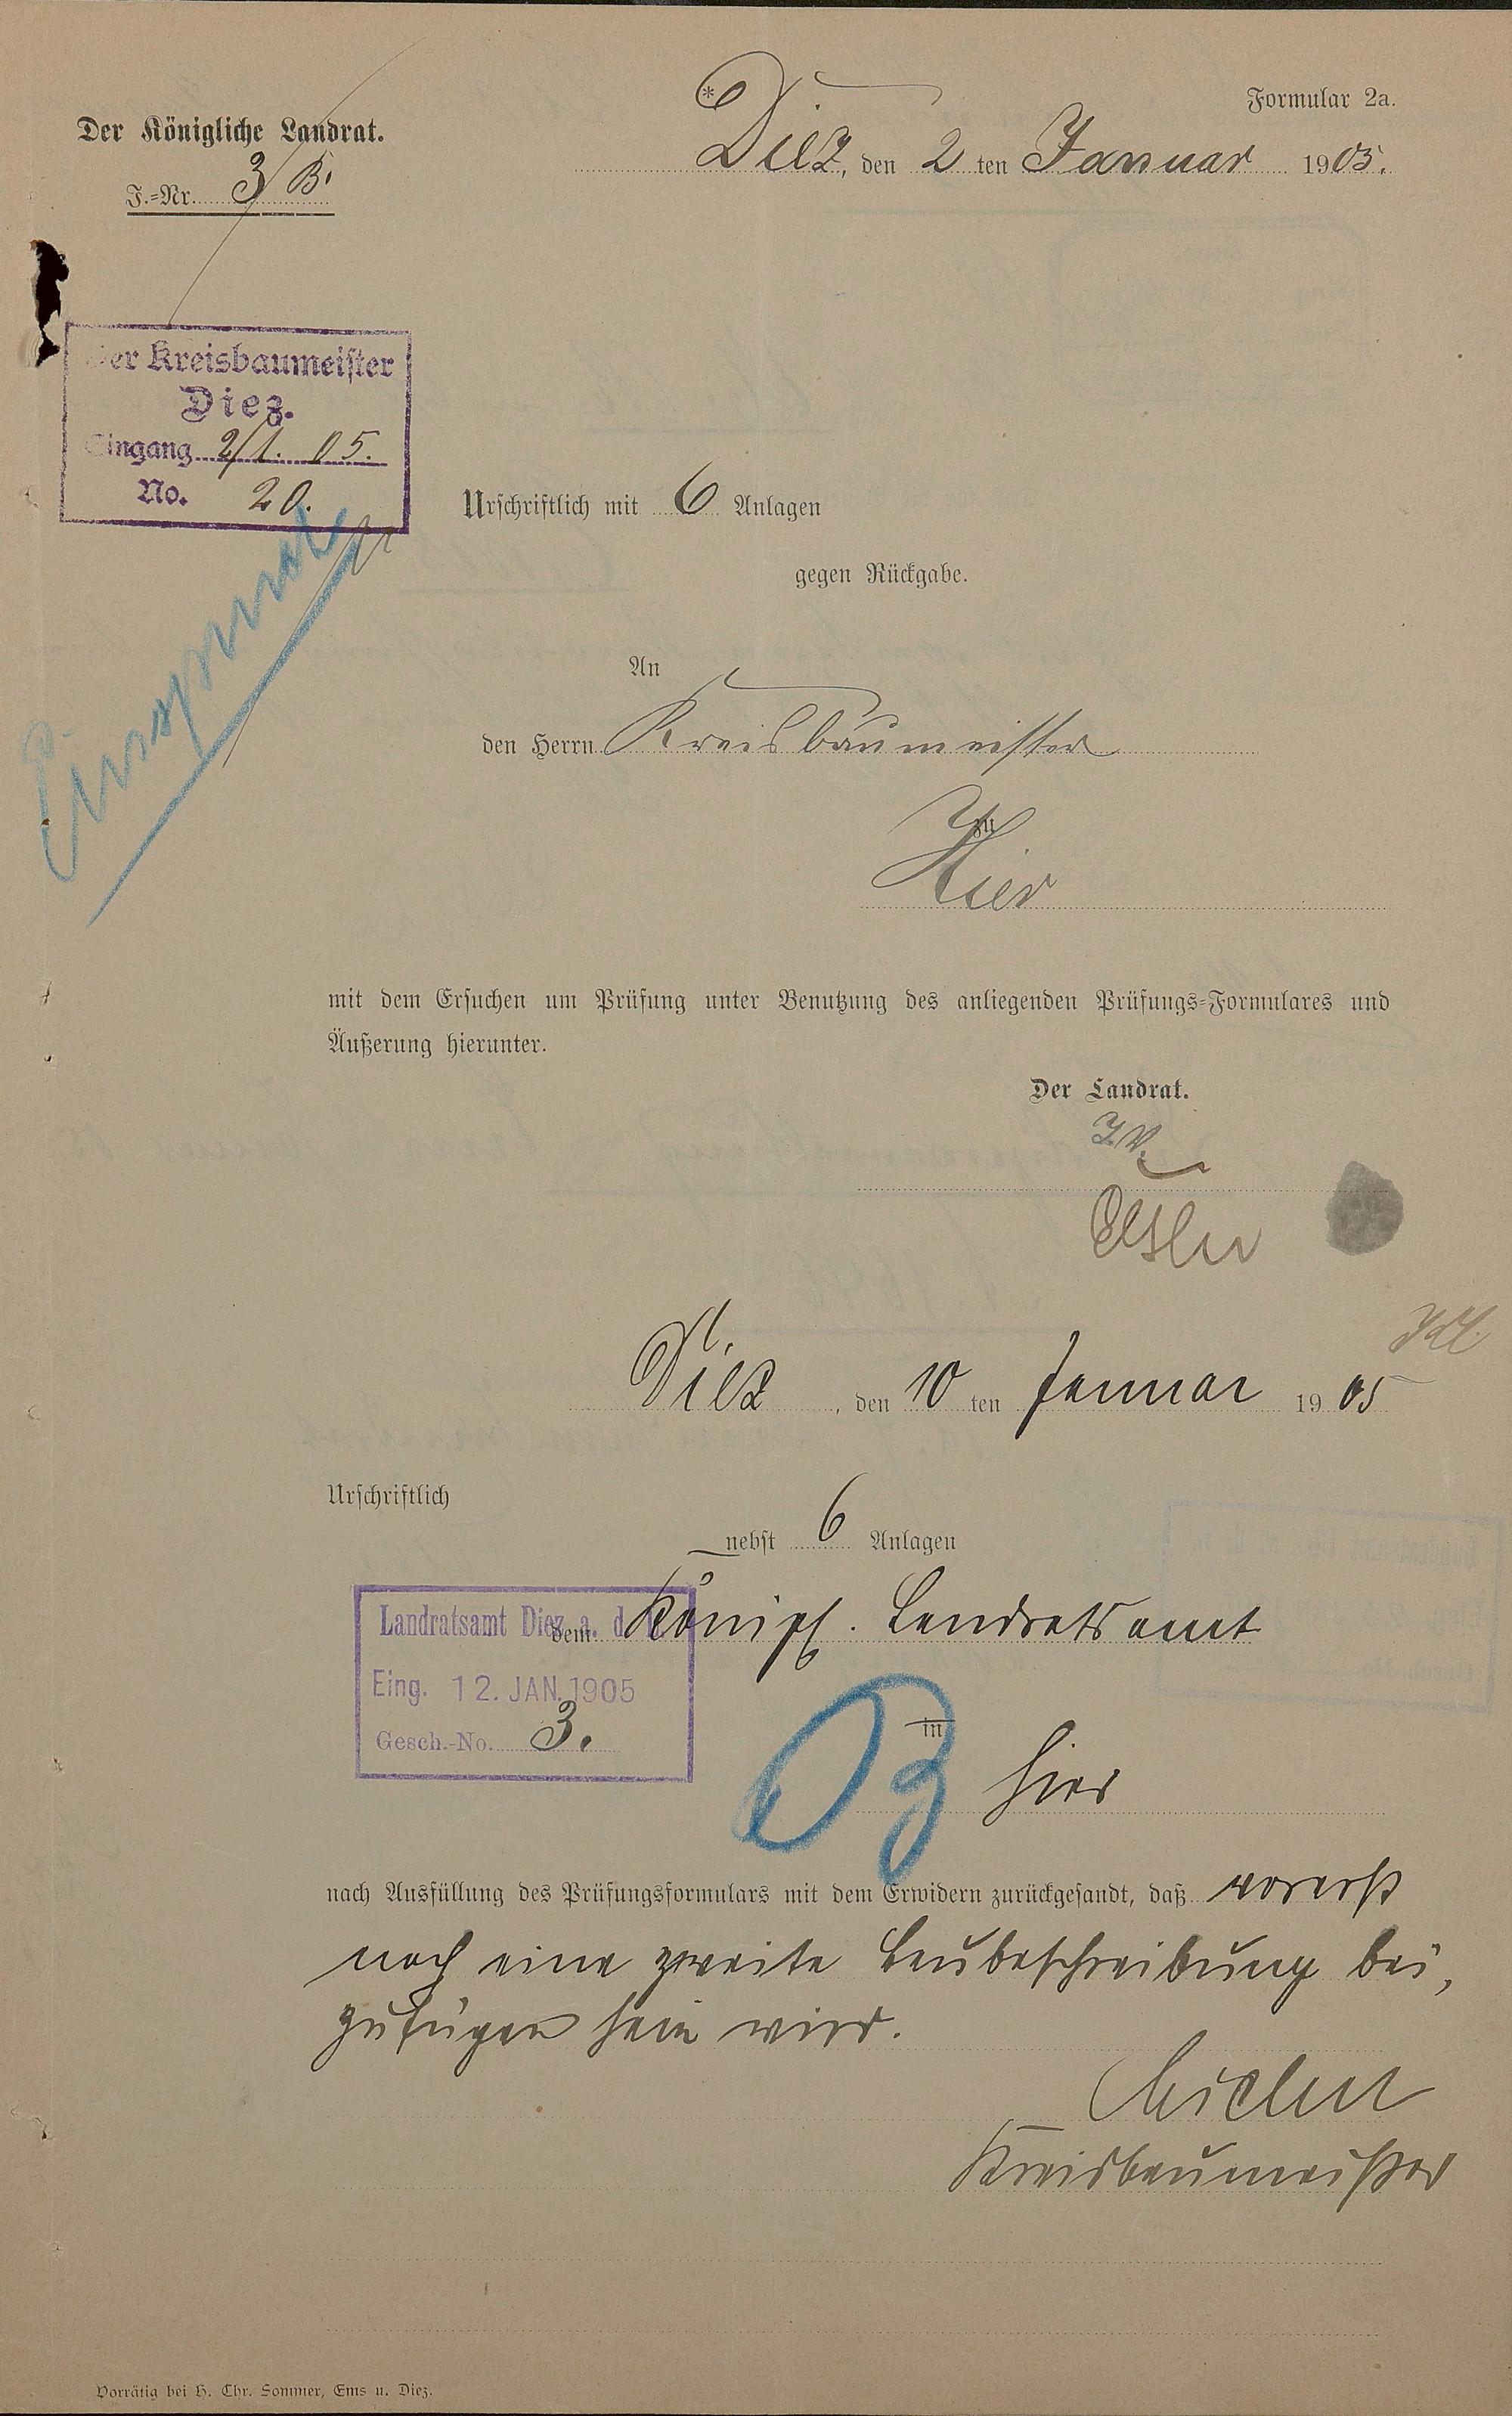 Formular 2a.
Der Königliche Landrat.
Diez, den 2ten Januar 1905.
J.-Nr. 3 B.
Der Kreisbaumeister
Diez.
Eingang 2/1. 05.
No. 20.
Urschriftlich mit 6 Anlagen
gegen Rückgabe.
An
den Herrn Kreisbaumeister
zu
Hier
mit dem Ersuchen um Prüfung unter Benutzung des anliegenden Prüfungs-Formulares und
Äußerung hierunter.
Der Landrat.
J.V.
Diez, den 10ten Januar 1905
Urschriftlich
nebst 6 Anlagen
dem Königl. Landratsamt
Landratsamt Diez a. d. L.
Eing. 12. JAN. 1905
Gesch.-No. 3.
in
hier
nach Ausfüllung des Prüfungsformulars mit dem Erwidern zurückgesandt, daß vorerst
noch eine zweite Baubeschreibung bei,
zufügen sein wird.
Kreisbaumeister
Vorrätig bei H. Chr. Sommer, Ems u. Diez.